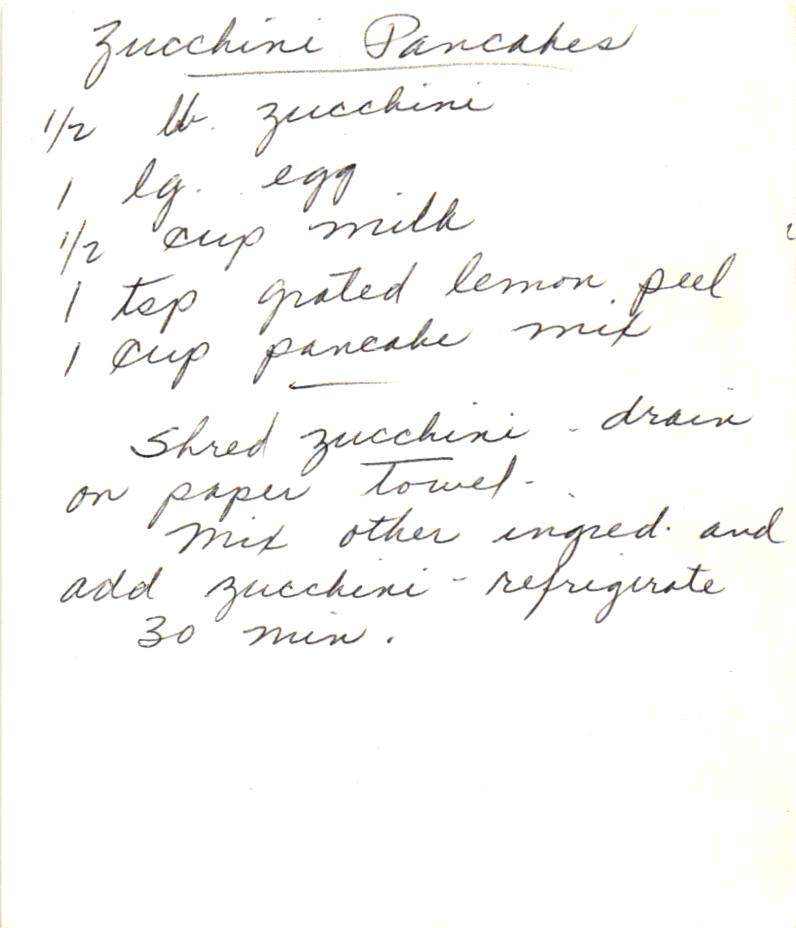 Zucchini Pancakes
1/2 lb. zucchini
1 lg. egg
1/2 cup milk
1 tsp grated lemon peel
1 cup pancake mix
Shred zucchini - drain
on paper towel -
Mix other ingred. and
add zucchini - refrigerate
30 min.